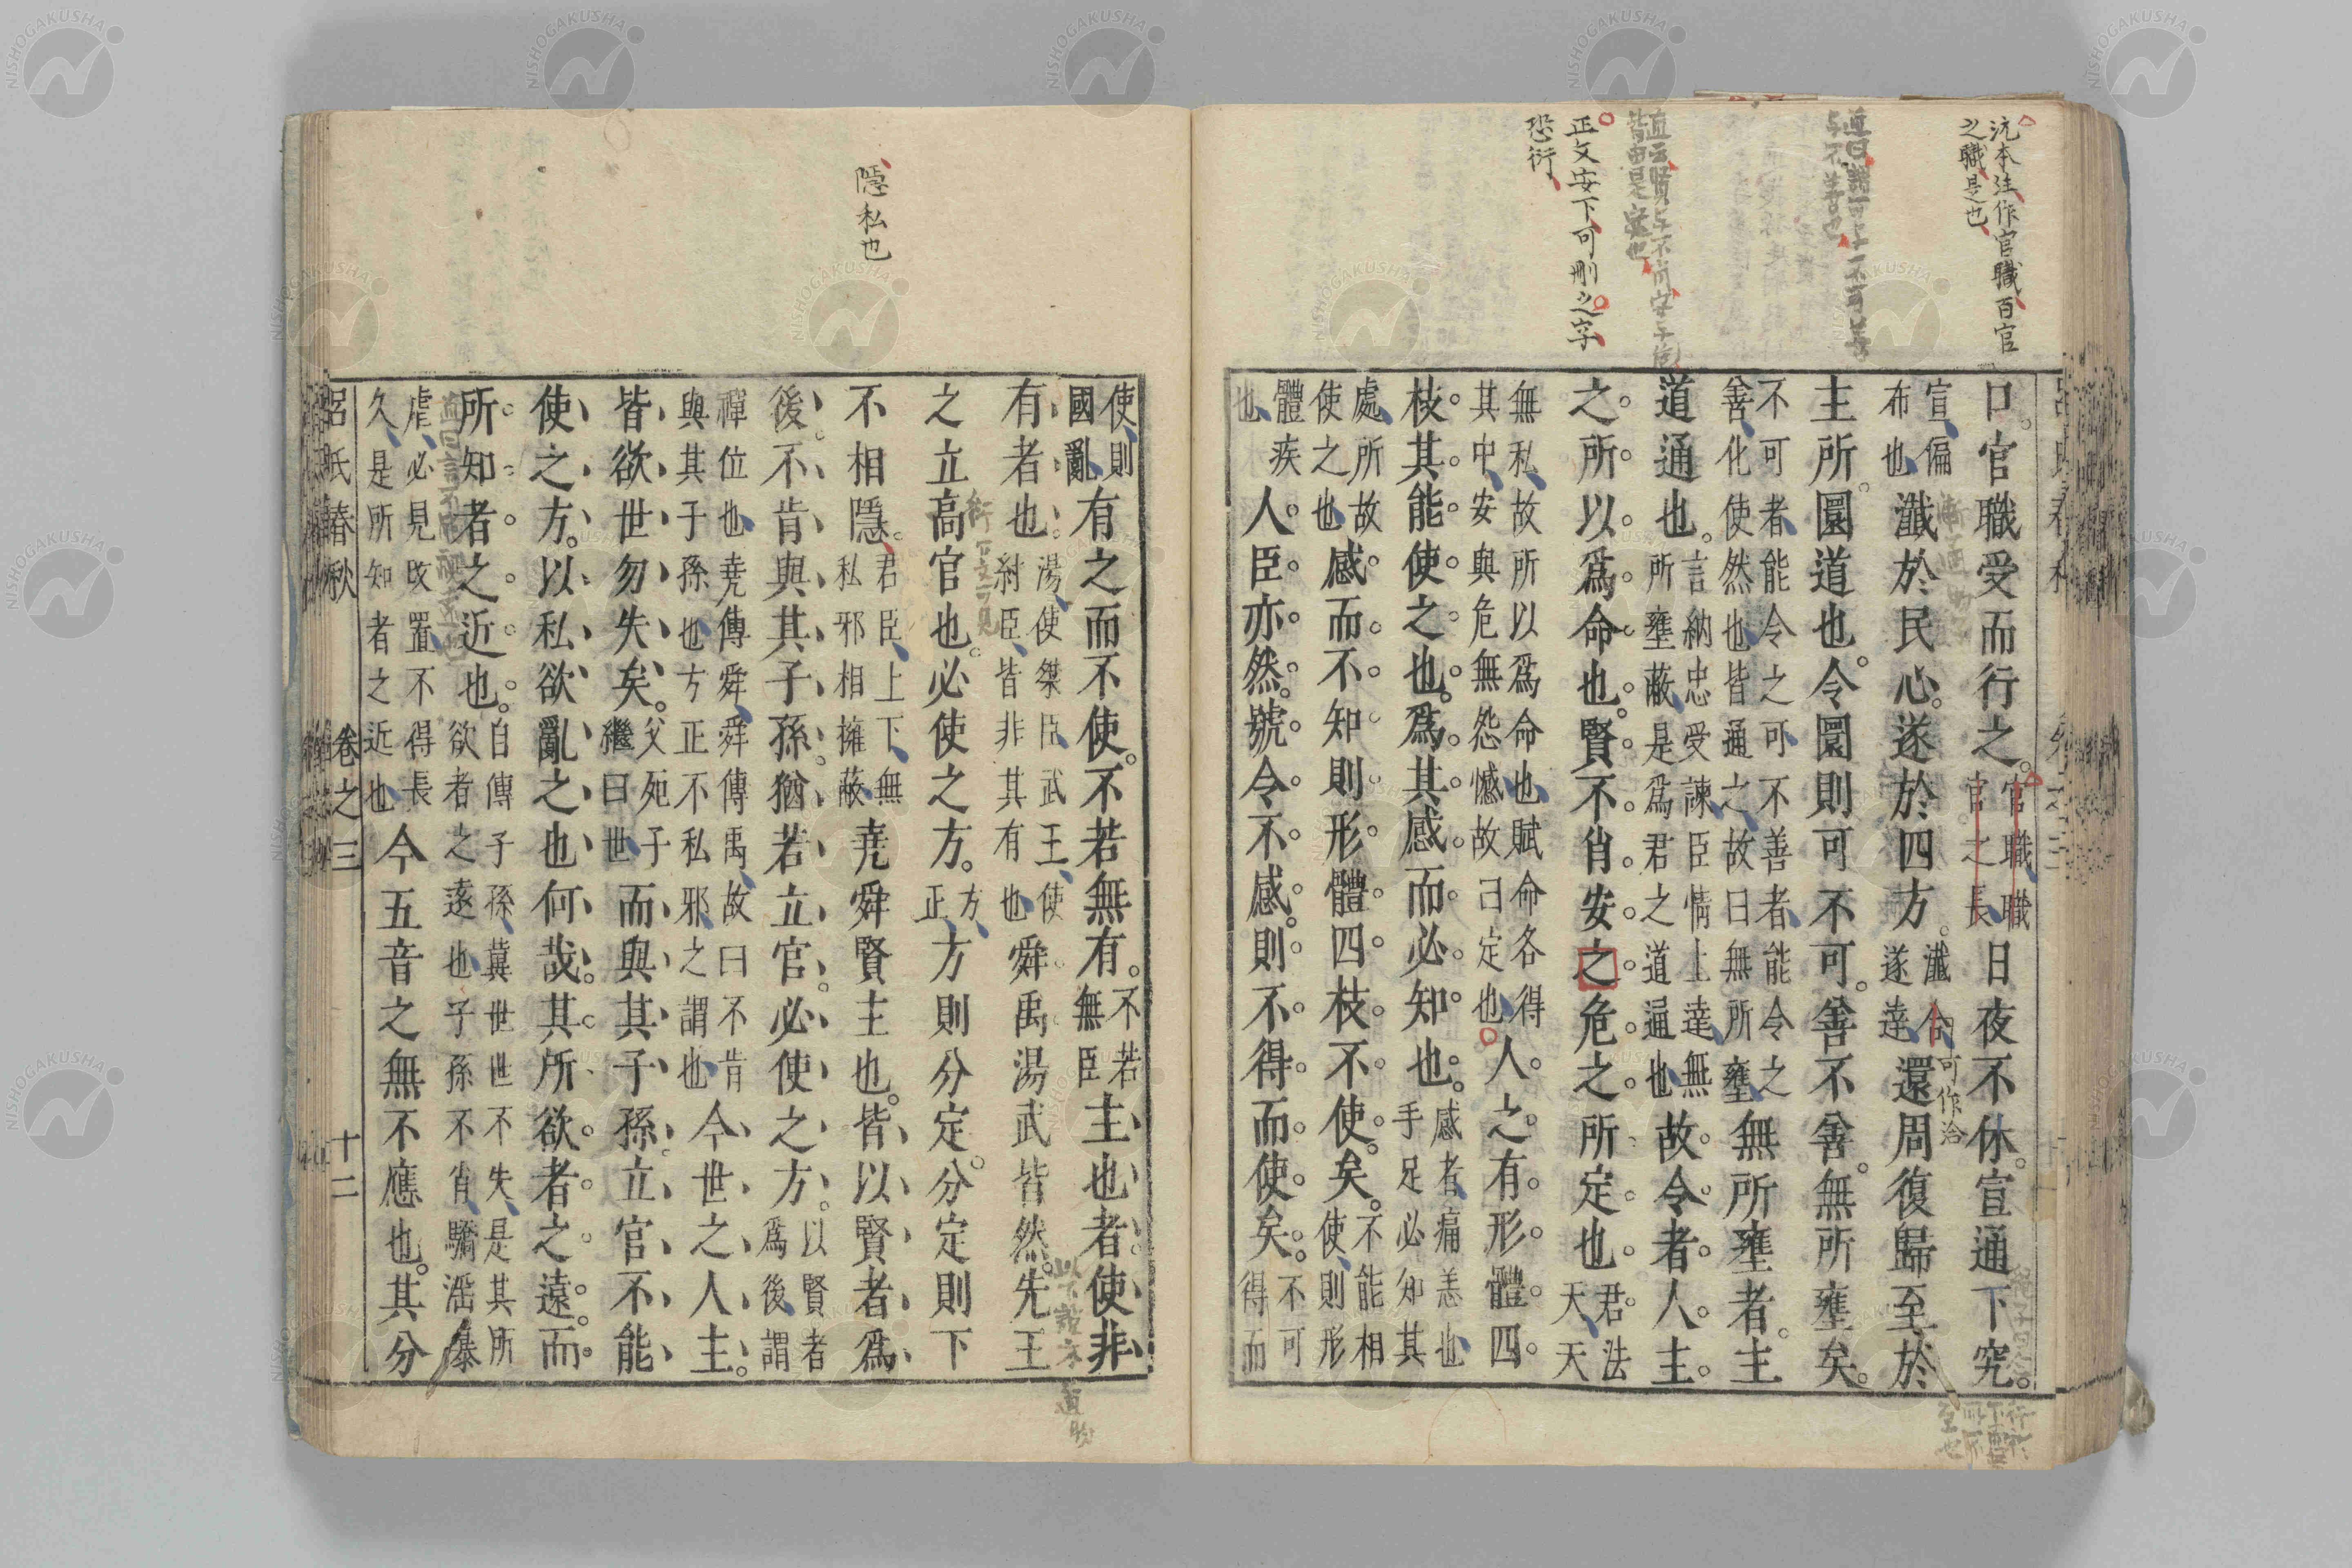 沆本注作官職百官
之職是也
正文安下可刪之字
恐衍
口官職受而行之官職職官之長日夜不休宣通下究
宣徧布也瀸於民心遂於四方瀸合遂達還周復歸至於
可作洽
主所圜道也令圜則可不可善不善無所壅矣
不可者能令之可不善者能令之善化使然也皆通之故曰無所壅無所壅者主
道通也言納忠受諫臣情上達無所壅蔽是爲君之道通也故令者人主
之所以爲命也賢不肖安之危之所定也君法天天
無私故所以爲命也賦命各得其中安與危無怨憾故曰定也人之有形體四
枝其能使之也爲其感而必知也感者痛恙也手足必知其
處所故使之也感而不知則形體四枝不使矣不能相使則形
體疾也人臣亦然號令不感則不得而使矣不可得而
隱私也
使則國亂有之而不使不若無有不若無臣主也者使非
有者也湯使桀臣武王使紂臣皆非其有也舜禹湯武皆然先王
之立高官也必使之方方正方則分定分定則下
不相隱君臣上下無私邪相擁蔽堯舜賢主也皆以賢者爲
後不肯與其子孫猶若立官必使之方以賢者爲後謂
禪位也堯傳舜舜傳禹故曰不肯與其子孫也方正不私邪之謂也今世之人主
皆欲世勿失矣父死子繼曰世而與其子孫立官不能
使之方以私欲亂之也何哉其所欲者之遠而
所知者之近也自傳子孫冀世世不失是其所欲者之遠也子孫不肖驕淫暴
虐必見改置不得長久是所知者之近也今五音之無不應也其分
呂氏春秋 卷之三 十二